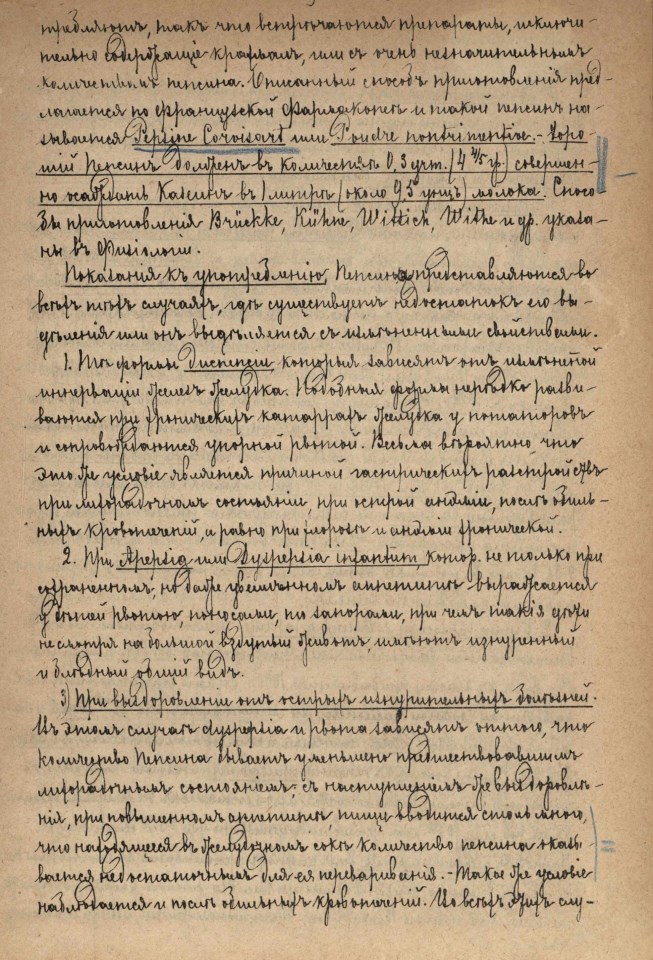 требляютъ, такъ что встрѣчаются препараты, исключи-
тельно содержащіе крахмалъ, или съ очень незначительнымъ
количествомъ пепсина. Описанный способъ приготовленія пред-
лагается по Французской Фармакопеѣ и такой пепсинъ на-
зывается Pepsine Corvisart или Poudre nontrimentive. - Хоро-
шій Пепсинъ долженъ въ количествѣ 0,3 grm. (4 4/5 гр.) совершен-
но осаждать Казеинъ въ 1 литрѣ (около 95 унцъ) молока. Спосо-
бы приготовленія Brücke, Kühne, Wittich, Withe и др. указа-
ны въ Физіологіи.
Показанія къ употребленію, Пепсина представляются во
всѣхъ тѣхъ случаяхъ, гдѣ существуетъ недостатокъ его вы-
дѣленія или онъ выдѣляется съ измѣненными свойствами.
1. Тѣ формы диспепсіи которыя зависятъ отъ измѣненной
иннерваціи железъ желудка. Подобныя формы нерѣдко разви-
ваются при хроническихъ катаррахъ желудка у потаторовъ
и сопровождаются упорной рвотой. Весьма вѣроятно что
это же условіе является причиной гастрическихъ разстройствъ
при лихорадочномъ состояніи, при острой анэміи, послѣ обиль-
ныхъ кровотеченій, а равно при хлорозѣ и анэміи хронической.
2. При Apepsia или Dyspepsia infantum, котор. не только при
сохраненномъ, но даже увеличенномъ аппетитѣ выражается
у дѣтей рвотою, поносами, то запорами, при чемъ такія дѣти
не смотря на большой вздутый животъ, имѣютъ изнуренный
и блѣдный общій видъ.
3) При выздоровленіи отъ острыхъ изнурительныхъ болѣзней.
Въ этомъ случаѣ dyspepsia и рвота зависятъ оттого, что
количество Пепсина бываетъ уменьшено предшествовавшимъ
лихорадочнымъ состояніемъ; съ наступленіемъ же выздоровлѣ-
нія, при повышенномъ аппетитѣ, пищи вводится столь много,
что находящееся въ желудочномъ сокѣ количество пепсина оказы-
вается недостаточнымъ для ея перевариванія. - Такое же условіе
наблюдается и послѣ обильныхъ кровотеченій. Во всѣхъ этихъ слу-